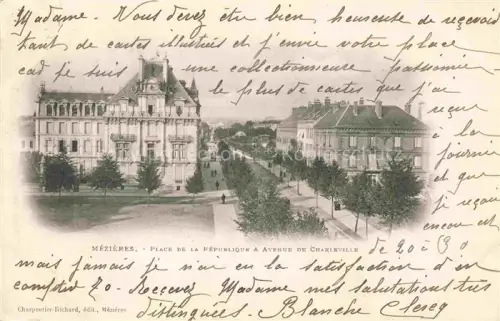 Madame, Vous devez être bien heureuse de reçevoir
tant de cartes illustrées et j'envie votre place
car je suis une collectionneuse passionnée
le plus de cartes que j'ai
reçue
dans la
journée
et que
je puis
encore
MÉZIÈRES. - PLACE DE LA RÉPUBLIQUE & AVENUE DE CHARLEVILLE
est de 20 & 30
mais jamais je n'ai eu la satisfaction d'en
compter 70. Recevez Madame mes salutations très
Distinguées. Blanche Clercq
Charpentier-Richard, édit., Mézières